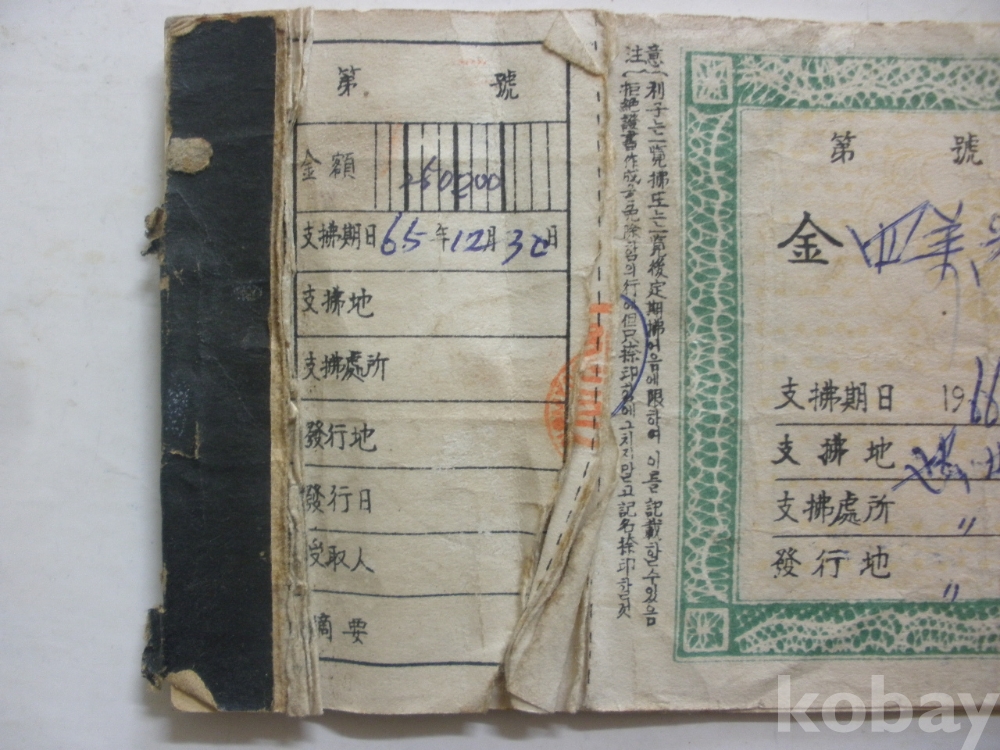 第 號
金額 260000
支拂期日 65年12月30日
支拂地
支拂處所
發行地
發行日
受取人
摘要
注意
利子는 一覽拂 또는 一覽後定期拂어음에 限하여 이를 記載할 수 있음
拒絶證書作成 免除함의 行 但只捺印 함에 그치지 말고 記名捺印 하는 것
第 號
金
支拂期日 1966
支拂地
支拂處所 〃
發行地 〃
kobay